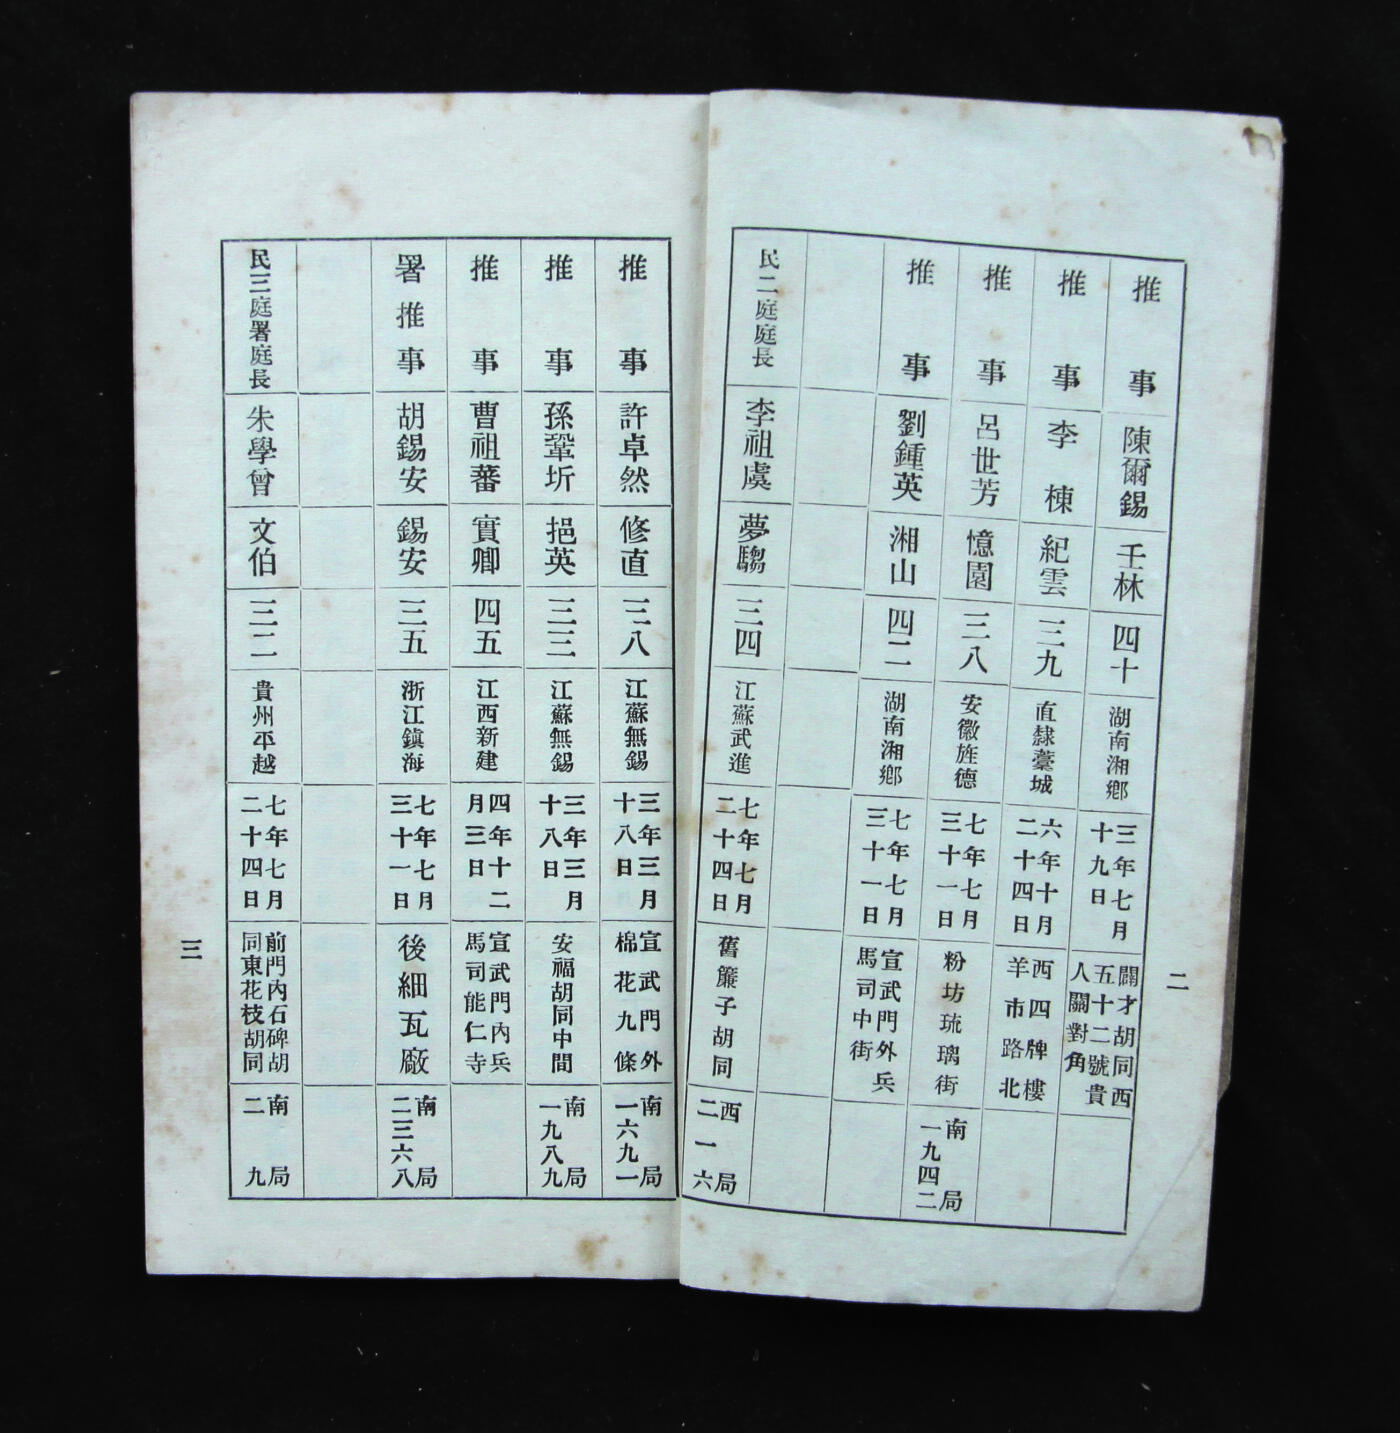 二
推事 陳爾錫 壬林 四十 湖南湘鄉 三年七月十九日 闢才胡同西五十二號貴人關對角
推事 李棟 紀雲 三九 直隸藁城 六年十月二十四日 西四牌樓羊市路北
推事 呂世芳 憶園 三八 安徽旌德 七年七月三十一日 粉坊琉璃街 南局一九四二
推事 劉鍾英 湘山 四二 湖南湘鄉 七年七月三十一日 宣武門外兵馬司中街
民二庭庭長 李祖虞 夢騶 三四 江蘇武進 七年七月二十四日 舊簾子胡同 西局二一六
推事 許卓然 修直 三八 江蘇無錫 三年三月十八日 宣武門外棉花九條 南局一六九一
推事 孫鞏圻 挹英 三三 江蘇無錫 三年三月十八日 安福胡同中間 南局一九八九
推事 曹祖蕃 實卿 四五 江西新建 四年十二月三日 宣武門內兵馬司能仁寺
署推事 胡錫安 錫安 三五 浙江鎮海 七年七月三十一日 後細瓦廠 南局二三六八
民三庭署庭長 朱學曾 文伯 三二 貴州平越 七年七月二十四日 前門內石碑胡同東花枝胡同 南局二九
三